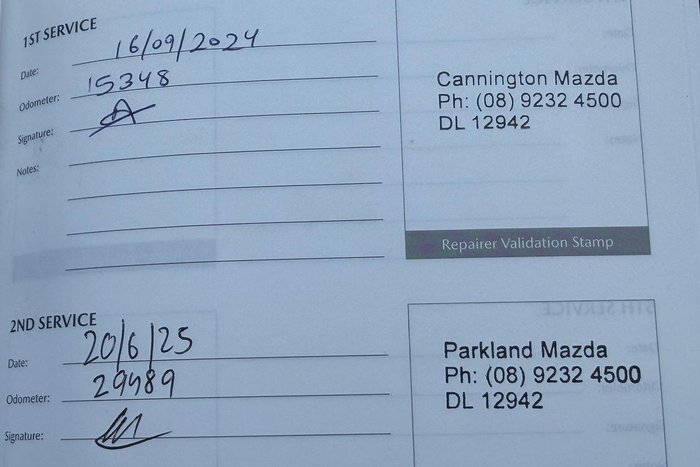 1ST SERVICE
Date: 16/09/2024
Odometer: 15348
Signature:
Notes:
Cannington Mazda
Ph: (08) 9232 4500
DL 12942
Repairer Validation Stamp
2ND SERVICE
Date: 20/6/25
Odometer: 29489
Signature:
Parkland Mazda
Ph: (08) 9232 4500
DL 12942